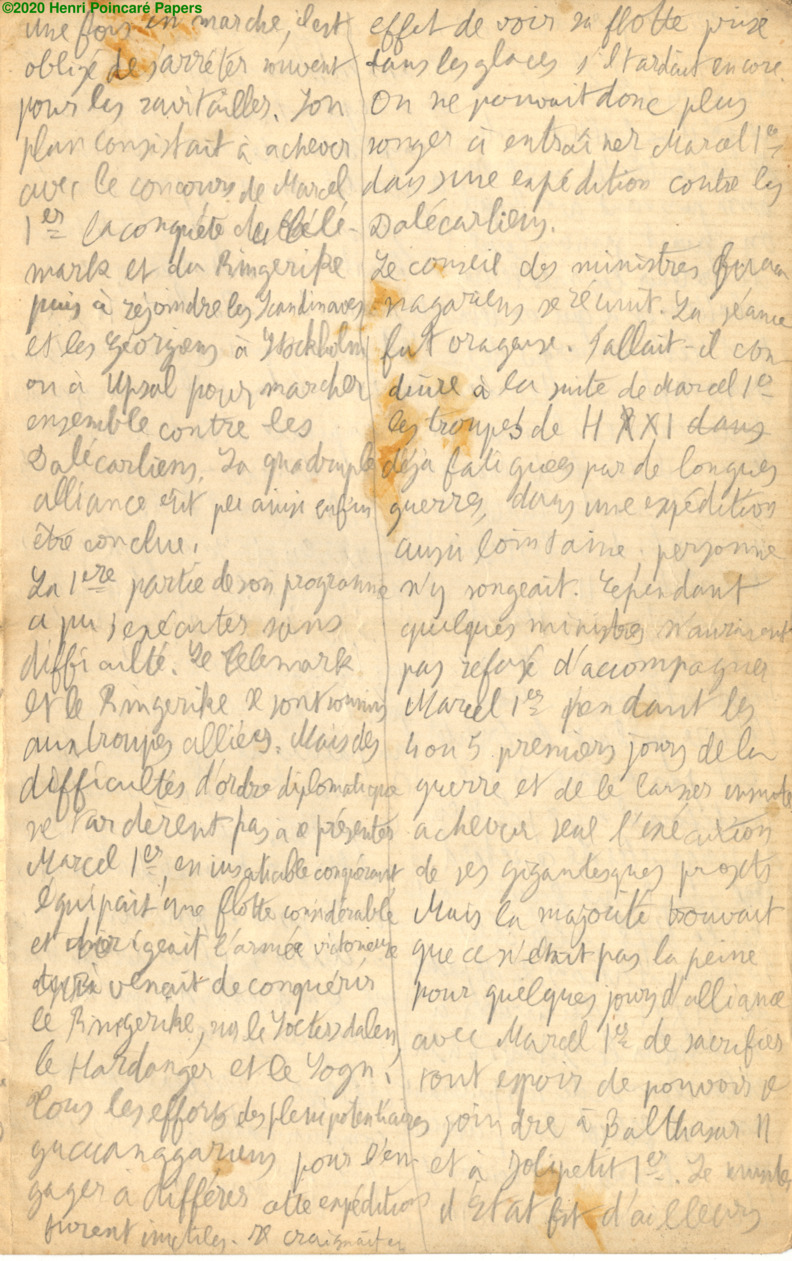 ©2020 Henri Poincaré Papers
une fois en marche, il est
obligé de s'arrêter souvent
pour les ravitailler. Son
plan consistait à achever
avec le concours de Marcel
1er la conquête du Télé-
mark et du Ringerike
puis à rejoindre les Scandinaves
et les Géorgiens à Stockholm
ou à Upsal pour marcher
ensemble contre les
Dalécarliens. La quadruple
alliance eut pu ainsi enfin
être conclue.
La 1ère partie de son programme
a pu s'exécuter sans
difficulté. Le Télémark
et le Ringerike se sont soumis
aux troupes alliées. Mais des
difficultés d'ordre diplomatique
ne tardèrent pas à se présenter
Marcel 1er, en insatiable conquérant
équipait une flotte considérable
et dirigeait l'armée victorieuse
qui venait de conquérir
le Ringerike, sur le
le Hardanger et le Sogn.
Tous les efforts des plénipotentiaires
pour l'en-
gager à différer cette expédition
furent inutiles. Il craignait en
effet de voir sa flotte prise
dans les glaces s'il tardait encore.
On ne pouvait donc plus
songer à entraîner Marcel 1er
dans une expédition contre les
Dalécarliens.
Le conseil des ministres
se réunit. La séance
fut orageuse. Fallait-il con-
duire à la suite de Marcel 1er
les troupes de H XXI dans
déjà fatiguées par de longues
guerres, dans une expédition
aussi lointaine, personne
n'y songeait. Cependant
quelques ministres n'auraient
pas refusé d'accompagner
Marcel 1er pendant les
4 ou 5 premiers jours de la
guerre et de le laisser ensuite
achever seul l'exécution
de ses gigantesques projets
Mais la majorité trouvait
que ce n'était pas la peine
pour quelques jours d'alliance
avec Marcel 1er de sacrifier
tout espoir de pouvoir se
joindre à Balthasar II
et à Jolipetit 1er. Le ministre
d'Etat fit d'ailleurs